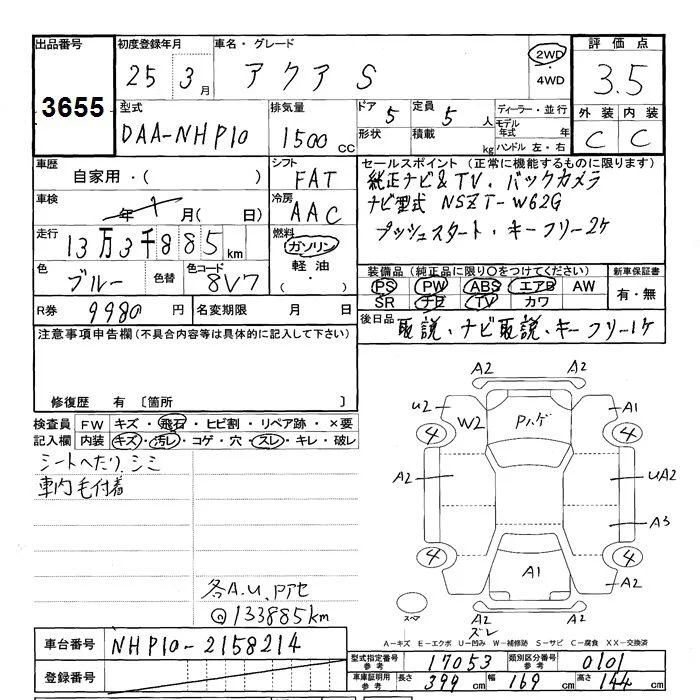 出品番号 初度登録年月 車名・グレード 評価点
3655 25 3月 アクア S 2WD ・ 4WD 3.5
型式 排気量 ドア 定員 ディーラー・並行 外装 内装
DAA-NHP10 1500 CC 5 5人 モデル年式 年 C C
形状 積載 kg ハンドル 左・右
車歴 シフト セールスポイント (正常に機能するものに限ります)
自家用・( ) FAT 純正ナビ&TV、バックカメラ
車検 冷房 ナビ型式 NSZT-W62G
年 月( 日) AAC プッシュスタート・キーフリー2ケ
走行 燃料
13万3千885km ガソリン
色 色替 色コード 軽油 装備品 (純正品に限り○をつけてください) 新車保証書
ブルー 8V7 ・( ) PS PW ABS エアB AW 有・無
R券 9980円 名変期限 月 日 SR ナビ TV カワ
注意事項申告欄(不具合内容等は具体的に記入して下さい) 後日品 取説、ナビ取説、キーフリー1ケ
修復歴 有 〔箇所 〕
検査員 FW キズ・飛石・ヒビ割・リペア跡・×要
記入欄 内装 キズ・汚レ・コゲ・穴・スレ・キレ・破レ
シートへたり、シミ
車内毛付着
A2 A2
U2 W2 Pハゲ A1
4 4
A2 UA2
A3
4 4
A1 A2
各A.U.
@133885km
スペア スレ
A-キズ E-エクボ U-凹み W-補修跡 S-サビ C-腐食 XX-交換済
車台番号 NHP10-2158214 型式指定番号 参考 17053 類別区分番号 参考 0101
登録番号 車庫証明用 参考 長さ 399cm 幅 169cm 高さ 144cm